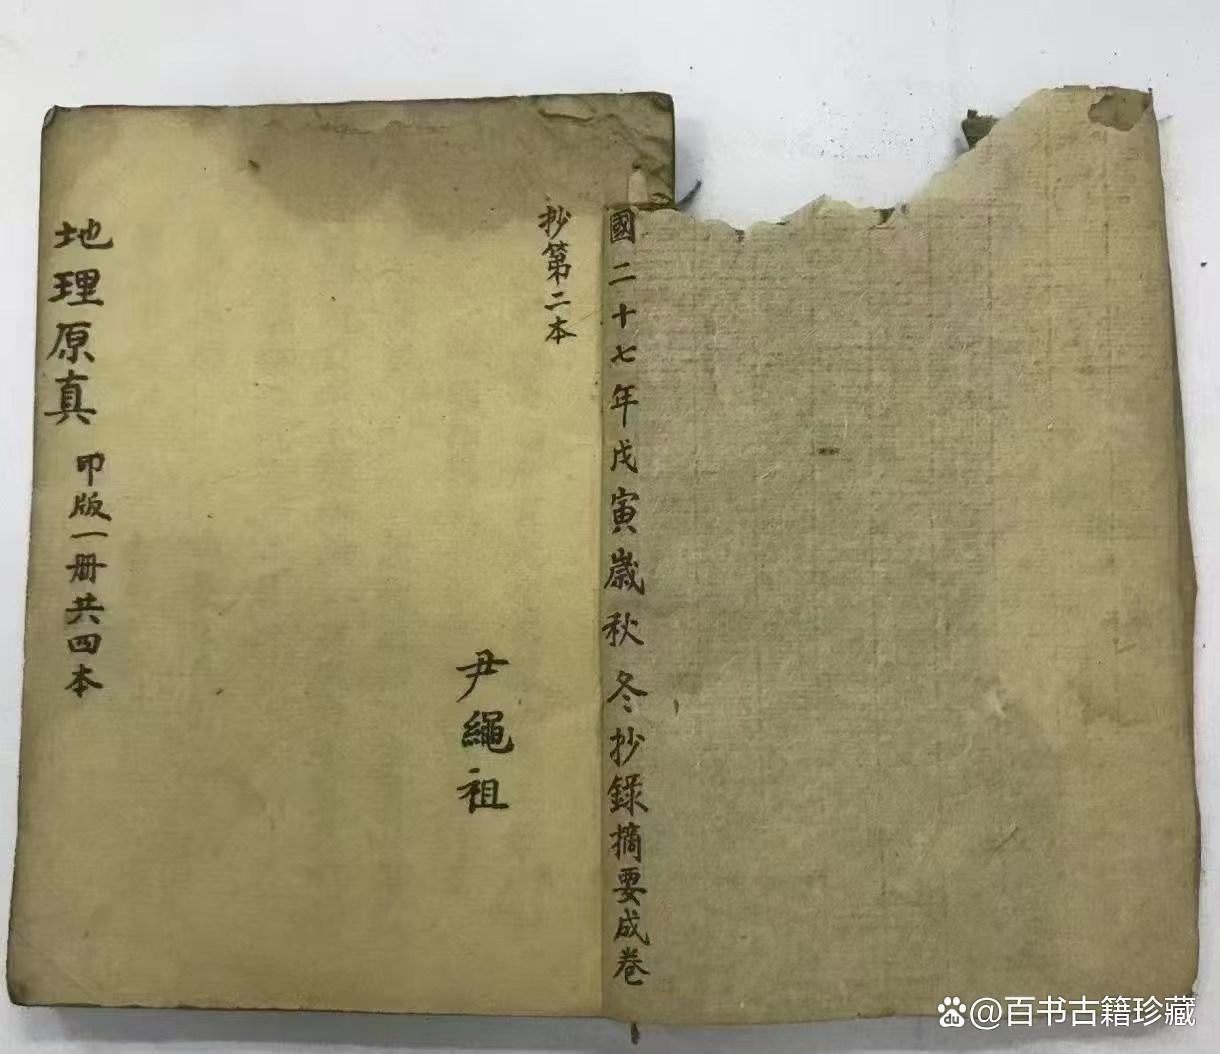 國二十七年戊寅歲秋冬抄錄摘要成卷
抄第二本
尹繩祖
地理原真
印版一册共四本
@百书古籍珍藏